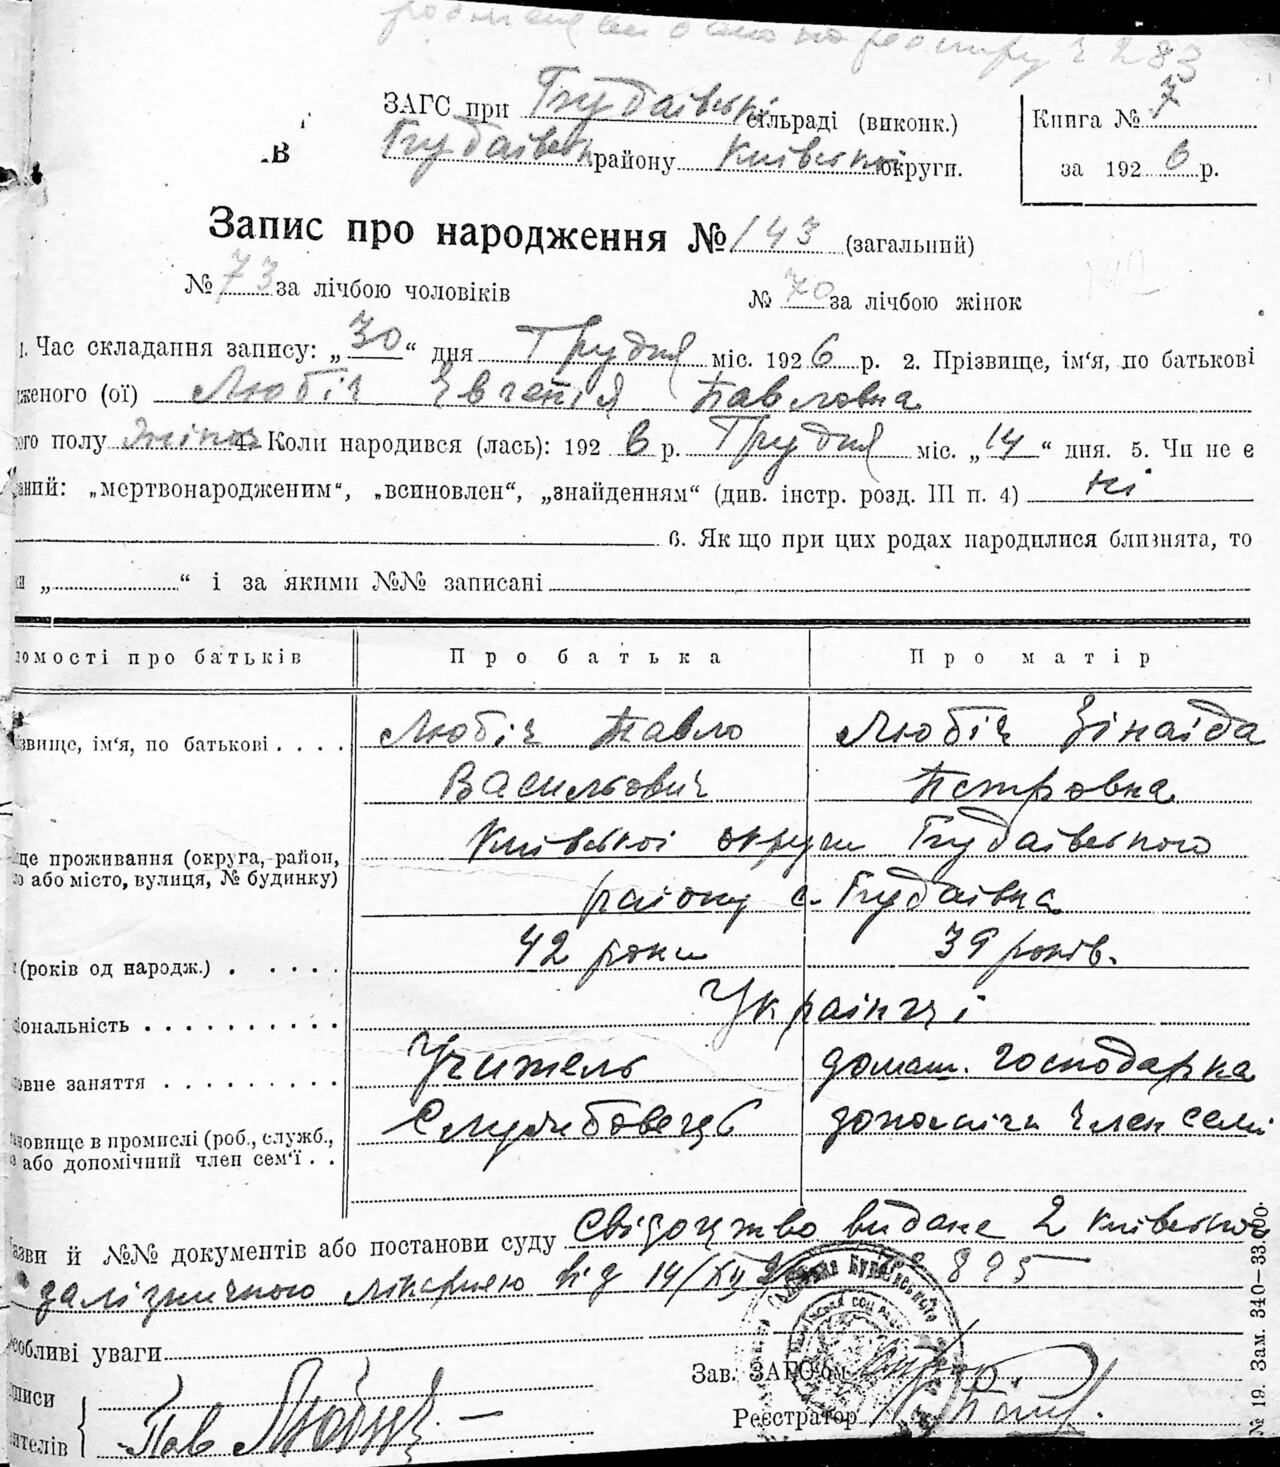 ЗАГС при Будаївські сільраді (виконк.)
.в Будаївськ району Київської округи.
Книга № 7
за 1926 р.
Запис про народження № 143 (загальний)
№ 73 за лічбою чоловіків № 70 за лічбою жінок
1. Час складання запису: „30“ дня Грудня міс. 1926 р. 2. Прізвище, ім‘я, по батькові
дженого (ої) Любіч Євгенія Павловна
ого полу жіноч 4. Коли народився (лась): 1926 р. Грудня міс. „14“ дня. 5. Чи не є
аний: „мертвонародженим“, „всиновлен“, „знайденням“ (див. інстр. розд. III п. 4) ні
6. Як що при цих родах народилися близнята, то
ки „ “ і за якими №№ записані
омості про батьків Про батька Про матір
звище, ім‘я, по батькові . . . . Любіч Павло Любіч Зінаіда
Васильович Петровна
Київської округи Будаівського
це проживання (округа, район,
о або місто, вулиця, № будинку)
району с. Будаівка
(років од народж.) . . . . . 42 роки 39 років.
Украінці
іональність . . . . . . . . . .
овне заняття . . . . . . . . . Учитель домаш. господарка
Службовець допоміжн член семі
новище в промислі (роб., служб.,
або допомічний член сем‘ї . .
азви й №№ документів або постанови суду Свідоцтво видане 2 Київською
залізничною лікарнею від 14/XII 26 № 895
собливі уваги
Зав. ЗАГС‘ом
писи
Реєстратор
ителів Пав Любич
№ 19. Зам. 340—33.000.